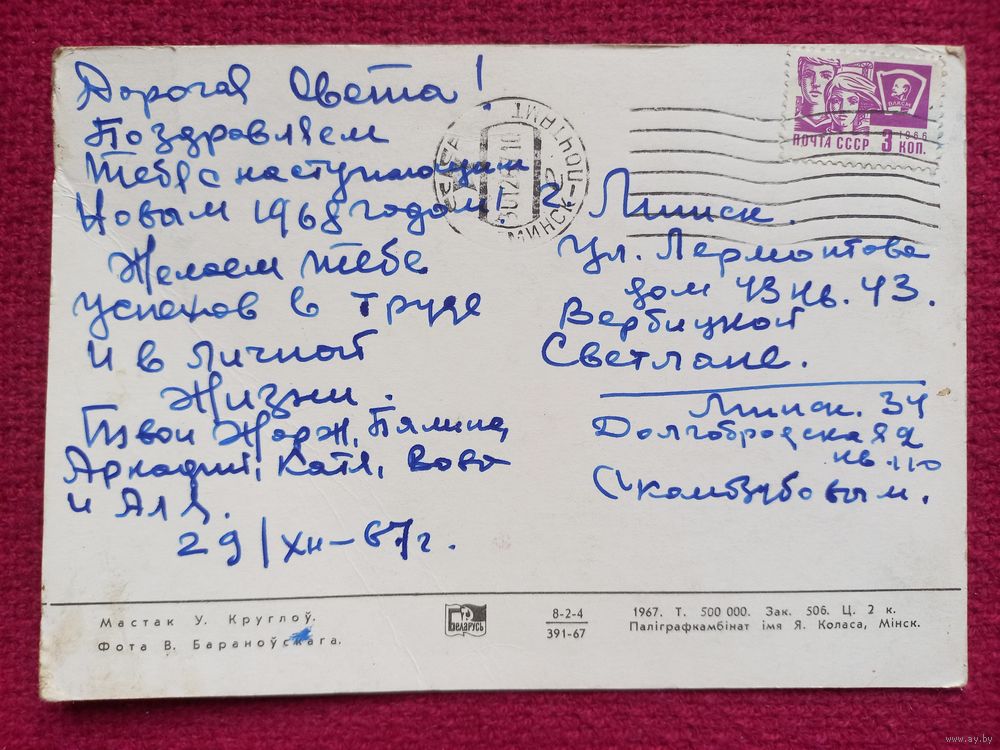 Дорогая Света!
Поздравляем
Тебя с наступающим
Новым 1968 годом.
Желаем тебе
успехов в труде
и в личной
жизни.
Твои Жорж, Галина,
Аркадий, Катя, Вова
и Алл.
29/XII-67г.
г. Минск.
ул. Лермонтова
дом 43 кв. 43.
Вербицкой
Светлане.
Минск. 34
Долгобродская 2
кв. 110
ПОЧТАМТ
МИНСК
ВЛКСМ
1966
ПОЧТА СССР 3 КОП.
Мастак У. Круглоў.
Фота В. Бараноўскага.
Беларусь
8-2-4
391-67
1967. Т. 500 000. Зак. 506. Ц. 2 к.
Паліграфкамбінат імя Я. Коласа, Мінск.
www.ay.by